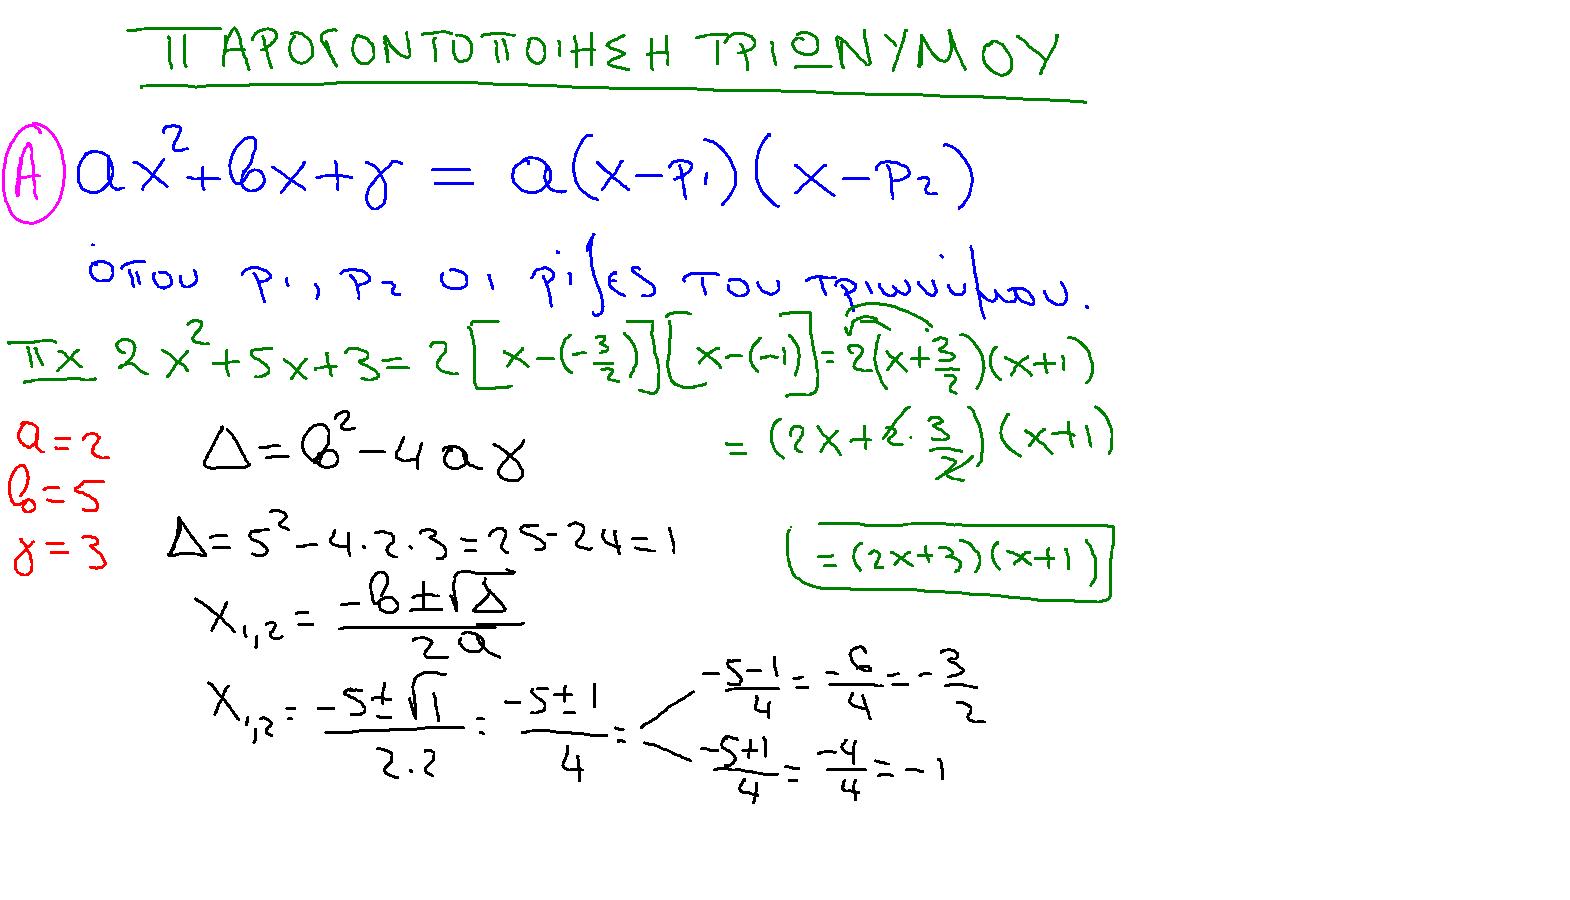 ΠΑΡΟΓΟΝΤΟΠΟΙΗΣΗ ΤΡΙΩΝΥΜΟΥ
Α αx²+βx+γ = α(x-ρ₁)(x-ρ₂)
όπου ρ₁, ρ₂ οι ρίζες του τριωνύμου.
πχ 2x²+5x+3 = 2[x-(-3/2)][x-(-1)] = 2(x+3/2)(x+1)
= (2x+2·3/2)(x+1)
α=2
β=5
γ=3
Δ=β²-4αγ
Δ=5²-4·2·3=25-24=1
=(2x+3)(x+1)
x₁,₂ = (-β±√Δ)/2α
x₁,₂ = (-5±√1)/(2·2) = (-5±1)/4 =
(-5-1)/4 = -6/4 = -3/2
(-5+1)/4 = -4/4 = -1